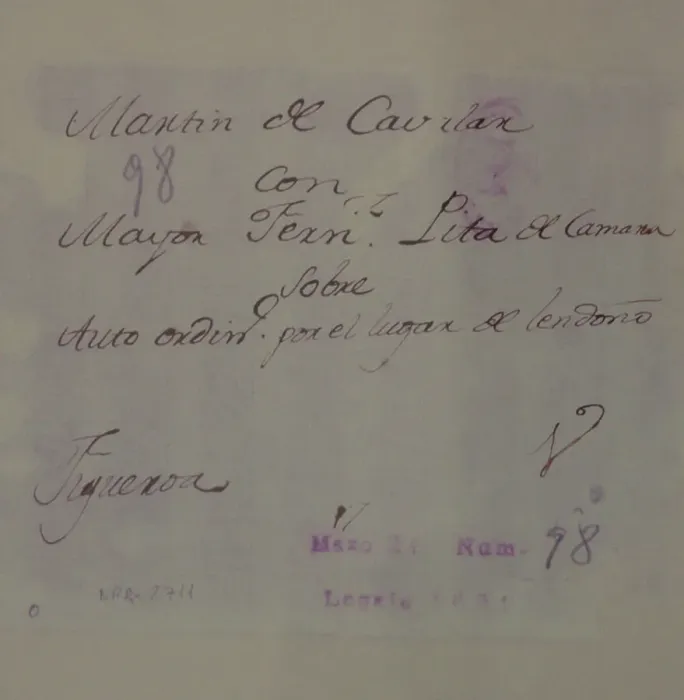 Martin de Cavilan
98
Con
Mayor Fernz. Pita de Camara
Sobre
Auto ordino. por el lugar de lendoño
Figueroa
Mazo Num. 98
Legajo